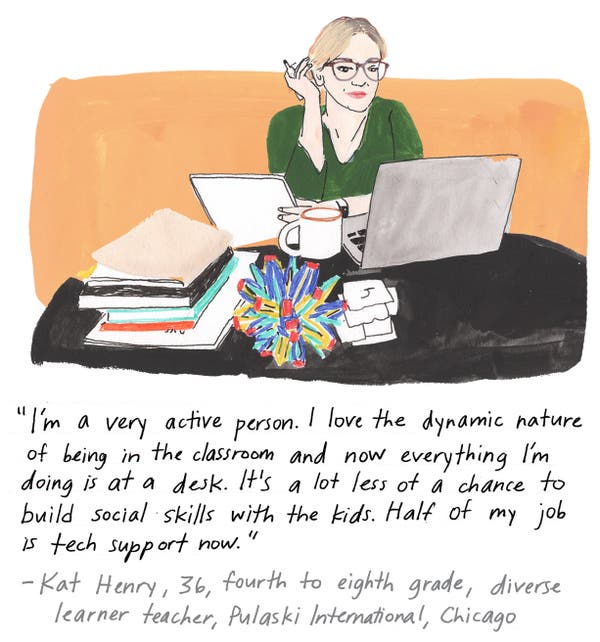 "I'm a very active person. I love the dynamic nature
of being in the classroom and now everything I'm
doing is at a desk. It's a lot less of a chance to
build social skills with the kids. Half of my job
is tech support now."
– Kat Henry, 36, fourth to eighth grade, diverse
learner teacher, Pulaski International, Chicago